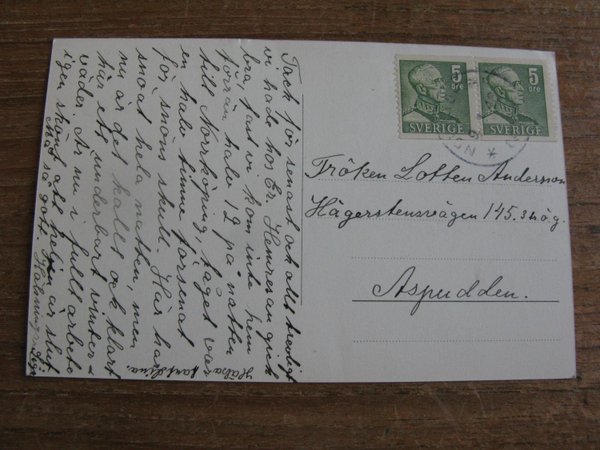 Tack för senast och allt trevligt
vi hade hos Er. Hemresan gick
bra, fast vi kom inte hem
förrän halv 12 på natten
till Norrköping, tåget var
en halv timme försenat
för snöns skull. Här har
snöat hela natten, men
nu är det kallt och klart
här ett underbart vinter=
väder. Är nu i full arbete
igen skönt att helgen är slut
Må så gott.
Hälsa
5
öre
SVERIGE
5
öre
SVERIGE
Fröken Lotten Andersson
Hägerstensvägen 145. 3 h ö. g.
Aspudden.